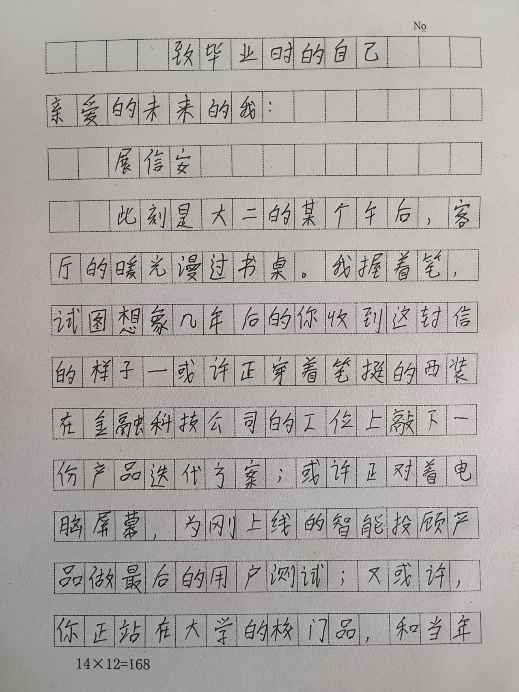 No
致毕业时的自己
亲爱的未来的我：
展信安
此刻是大二的某个午后，客
厅的暖光漫过书桌。我握着笔，
试图想象几年后的你收到这封信
的样子一或许正穿着笔挺的西装
在金融科技公司的工位上敲下一
份产品迭代方案；或许正对着电
脑屏幕，为刚上线的智能投顾产
品做最后的用户测试；又或许，
你正站在大学的校门品，和当年
14×12=168